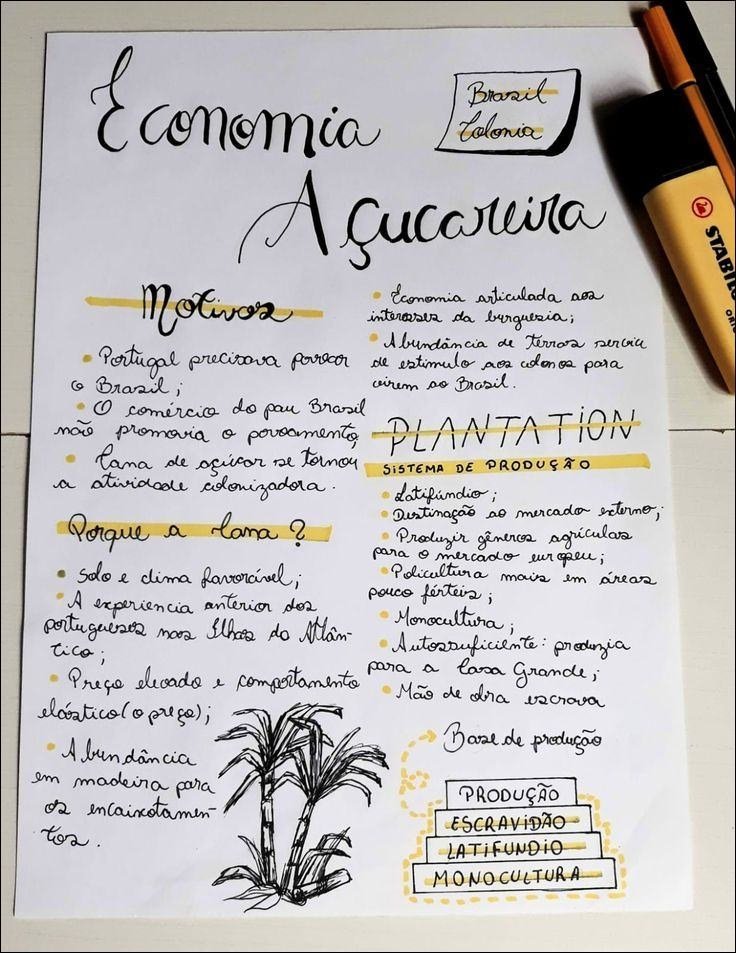 Economia
Açucareira
Brasil
Colonia
Motivos
• Portugal precisava povoar
o Brasil;
• O comércio do pau Brasil
não promovia o povoamento;
• Cana de açúcar se tornou
a atividade colonizadora.
Porque a Cana?
• Solo e clima favorável;
• A experiencia anterior dos
portugueses nas Ilhas do Atlân-
tico;
• Preço elevado e comportamento
elástico (o preço);
• Abundância
em madeira para
os encaixotamen-
tos.
• Economia articulada aos
interesses da burguesia;
• Abundância de Terras servia
de estimulo aos colonos para
virem ao Brasil.
PLANTATION
SISTEMA DE PRODUÇÃO
• Latifúndio;
• Destinação ao mercado externo;
• Produzir gêneros agrículas
para o mercado europeu;
• Policultura mais em áreas
pouco férteis;
• Monocultura;
• Autossuficiente: produzia
para a Casa Grande;
• Mão de obra escrava
Base de produção
PRODUÇÃO
ESCRAVIDÃO
LATIFUNDIO
MONOCULTURA
STABILO